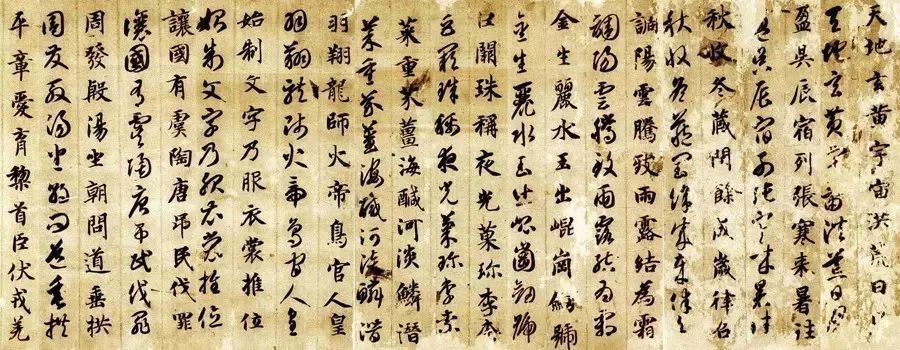 天地玄黃宇宙洪荒日月
天地玄黃宇宙洪荒日月
盈昃辰宿列張寒來暑往
盈昃辰宿列張寒來暑往
秋收冬藏閏餘成歲律呂
秋收冬藏閏餘成歲律呂
調陽雲騰致雨露結為霜
調陽雲騰致雨露結為霜
金生麗水玉出崐崗劍號
金生麗水玉出崐崗劍號
巨闕珠稱夜光菓珍李柰
巨闕珠稱夜光菓珍李柰
菜重芥薑海醎河淡鱗潛
菜重芥薑海醎河淡鱗潛
羽翔龍師火帝鳥官人皇
羽翔龍師火帝鳥官人皇
始制文字乃服衣裳推位
始制文字乃服衣裳推位
讓國有虞陶唐弔民伐罪
讓國有虞陶唐弔民伐罪
周發殷湯坐朝問道垂拱
周發殷湯坐朝問道垂拱
平章愛育黎首臣伏戎羌